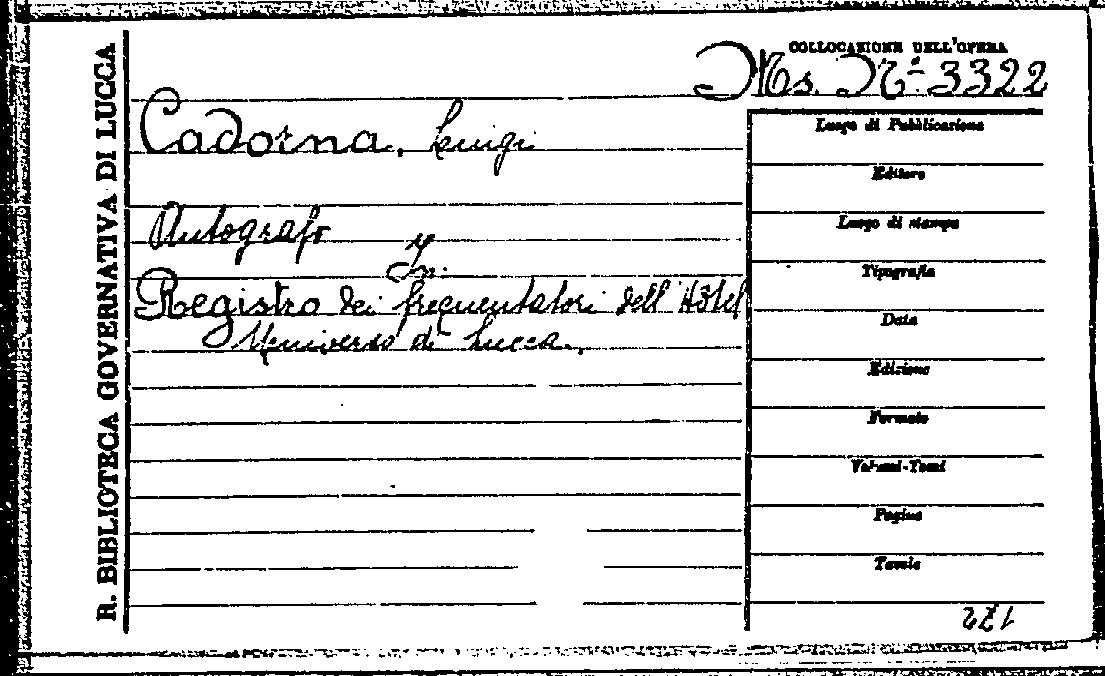 R. BIBLIOTECA GOVERNATIVA DI LUCCA
COLLOCAZIONE DELL'OPERA
Ms. N.º 3322
Cadorna, Luigi
Autografo
In:
Registro dei frequentatori dell'Hôtel
Universo di Lucca.
Luogo di Pubblicazione
Editore
Luogo di stampa
Tipografia
Data
Edizione
Formato
Volumi-Tomi
Pagine
Tavole
172